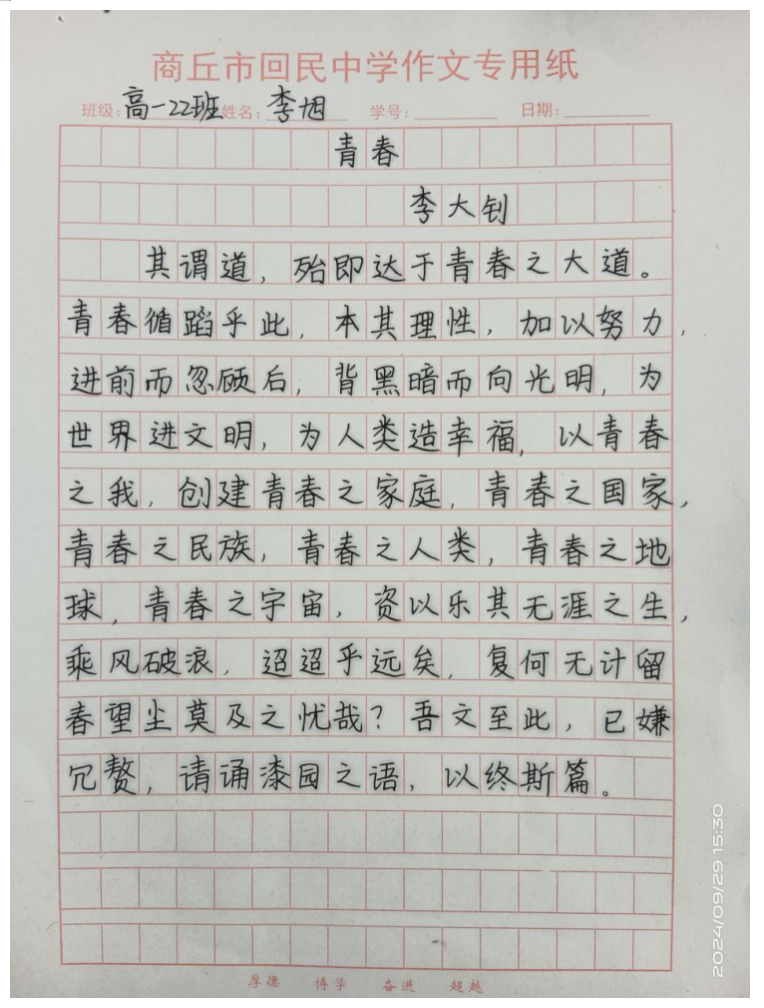 商丘市回民中学作文专用纸
班级：高一22班 姓名：李旭 学号： 日期：
青春
李大钊
其谓道，殆即达于青春之大道。
青春循蹈乎此，本其理性，加以努力，
进前而忽顾后，背黑暗而向光明，为
世界进文明，为人类造幸福，以青春
之我，创建青春之家庭，青春之国家，
青春之民族，青春之人类，青春之地
球，青春之宇宙，资以乐其无涯之生，
乘风破浪，迢迢乎远矣，复何无计留
春望尘莫及之忧哉？吾文至此，已嫌
冗赘，请诵漆园之语，以终斯篇。
厚德 博学 奋进 超越
2024/09/29 15:30